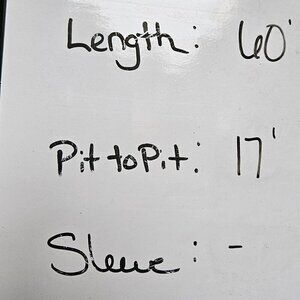 Length: 60'
Pit to Pit: 17'
Sleeve: -